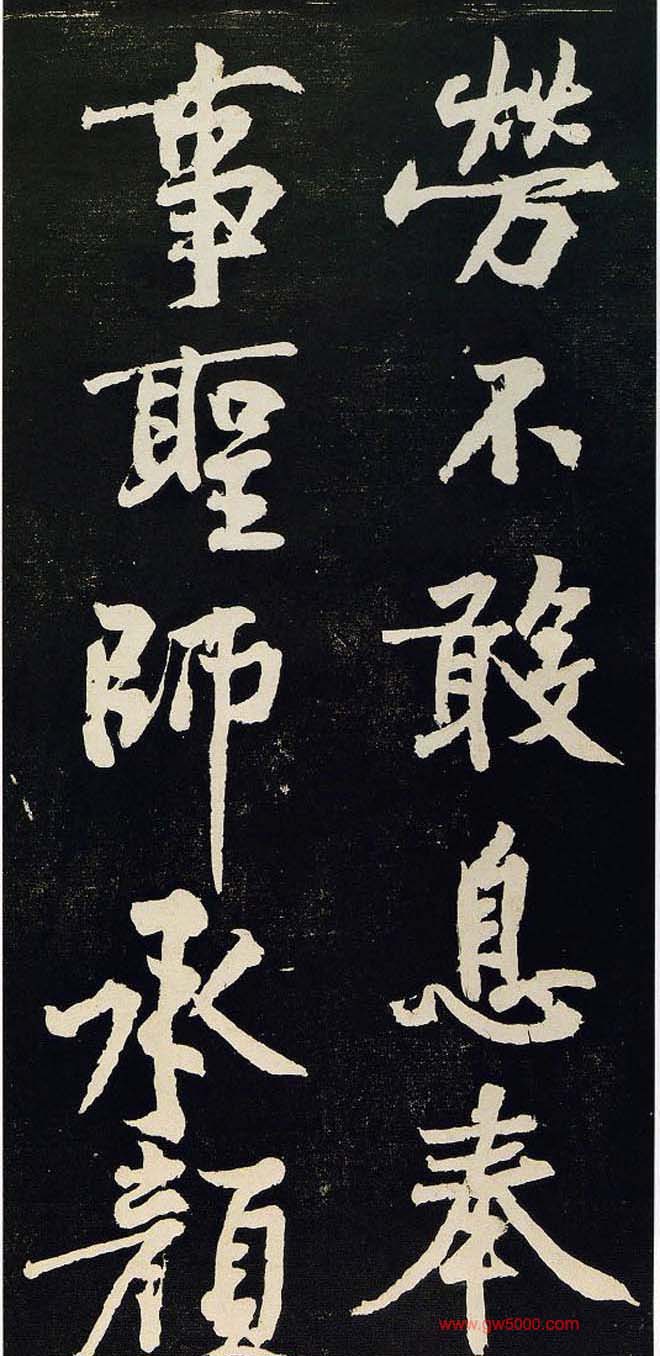 勞不敢息奉
事聖師承顏
www.gw5000.com